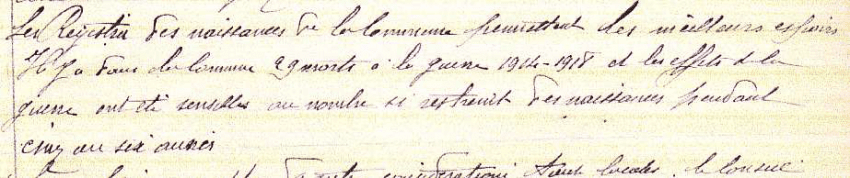 Les Registres des naissances de la Commune permettent des meilleurs espoirs
Il y a dans la Commune 29 morts à la guerre 1914-1918 et les effets de la
guerre ont été sensibles au nombre si restreint des naissances pendant
cinq ou six années
considérations tant locales, le Conseil